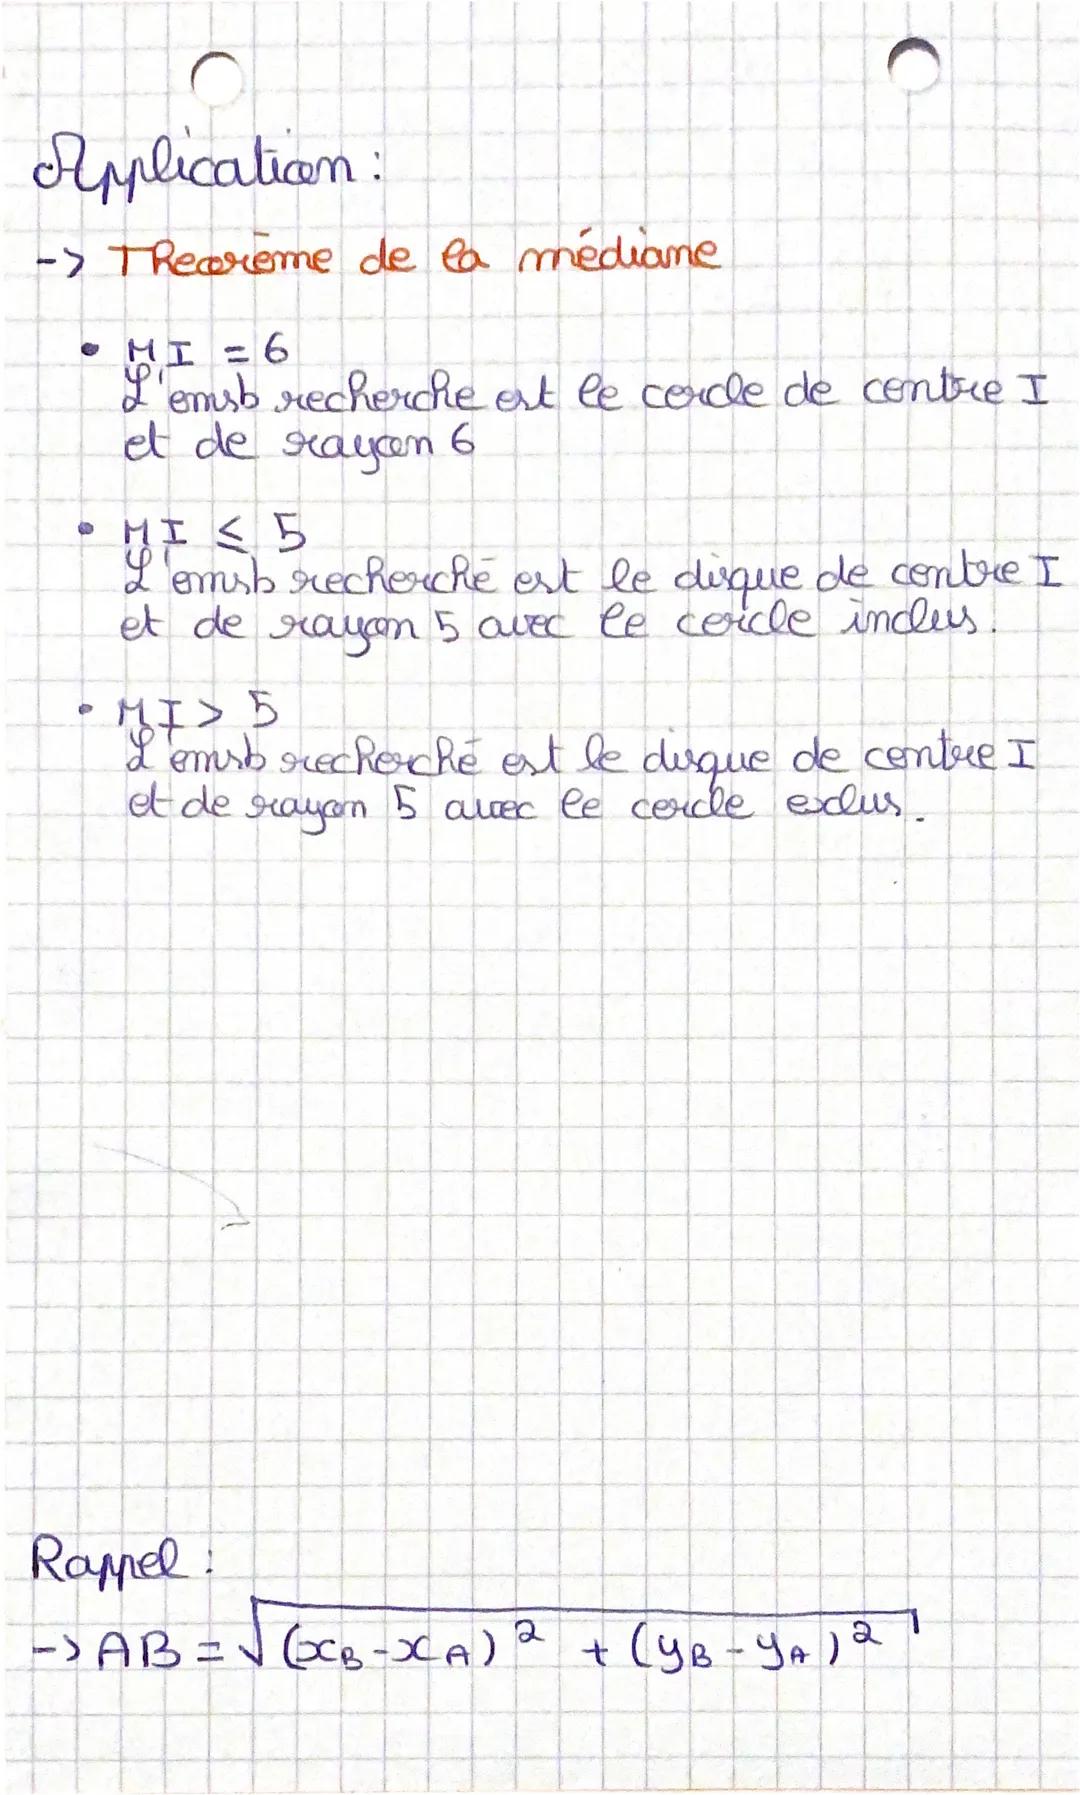 Application :
-> Theorème de la médiane
• MI = 6
L'emsb recherche est le cercle de centre I
et de rayon 6
• MI ≤ 5
L'emsb recherché est le disque de centre I
et de rayon 5 avec le cercle inclus.
• MI > 5
L'emsb recherché est le disque de centre I
et de rayon 5 avec le cercle exclus.
Rappel :
-> AB = √(xB - xA)² + (yB - yA)²